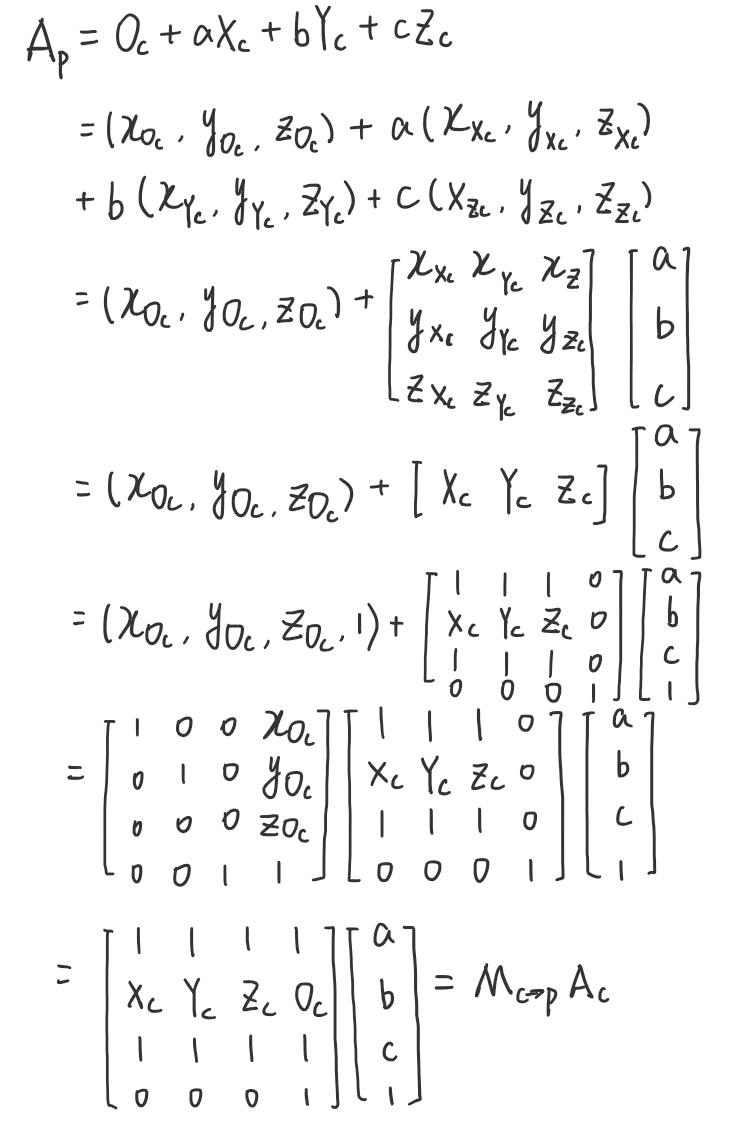 A_p = O_c + aX_c + bY_c + cZ_c
= (x_{O_c}, y_{O_c}, z_{O_c}) + a(x_{X_c}, y_{X_c}, z_{X_c})
+ b(x_{Y_c}, y_{Y_c}, z_{Y_c}) + c(x_{Z_c}, y_{Z_c}, z_{Z_c})
= (x_{O_c}, y_{O_c}, z_{O_c}) + [x_{X_c} x_{Y_c} x_Z; y_{X_c} y_{Y_c} y_{Z_c}; z_{X_c} z_{Y_c} z_{Z_c}] [a; b; c]
= (x_{O_c}, y_{O_c}, z_{O_c}) + [X_c Y_c Z_c] [a; b; c]
= (x_{O_c}, y_{O_c}, z_{O_c}, 1) + [| | | 0; X_c Y_c Z_c 0; | | | 0; 0 0 0 1] [a; b; c; 1]
= [1 0 0 x_{O_c}; 0 1 0 y_{O_c}; 0 0 0 z_{O_c}; 0 0 1 1] [| | | 0; X_c Y_c Z_c 0; | | | 0; 0 0 0 1] [a; b; c; 1]
= [| | | |; X_c Y_c Z_c O_c; | | | |; 0 0 0 1] [a; b; c; 1] = M_{c→p} A_c